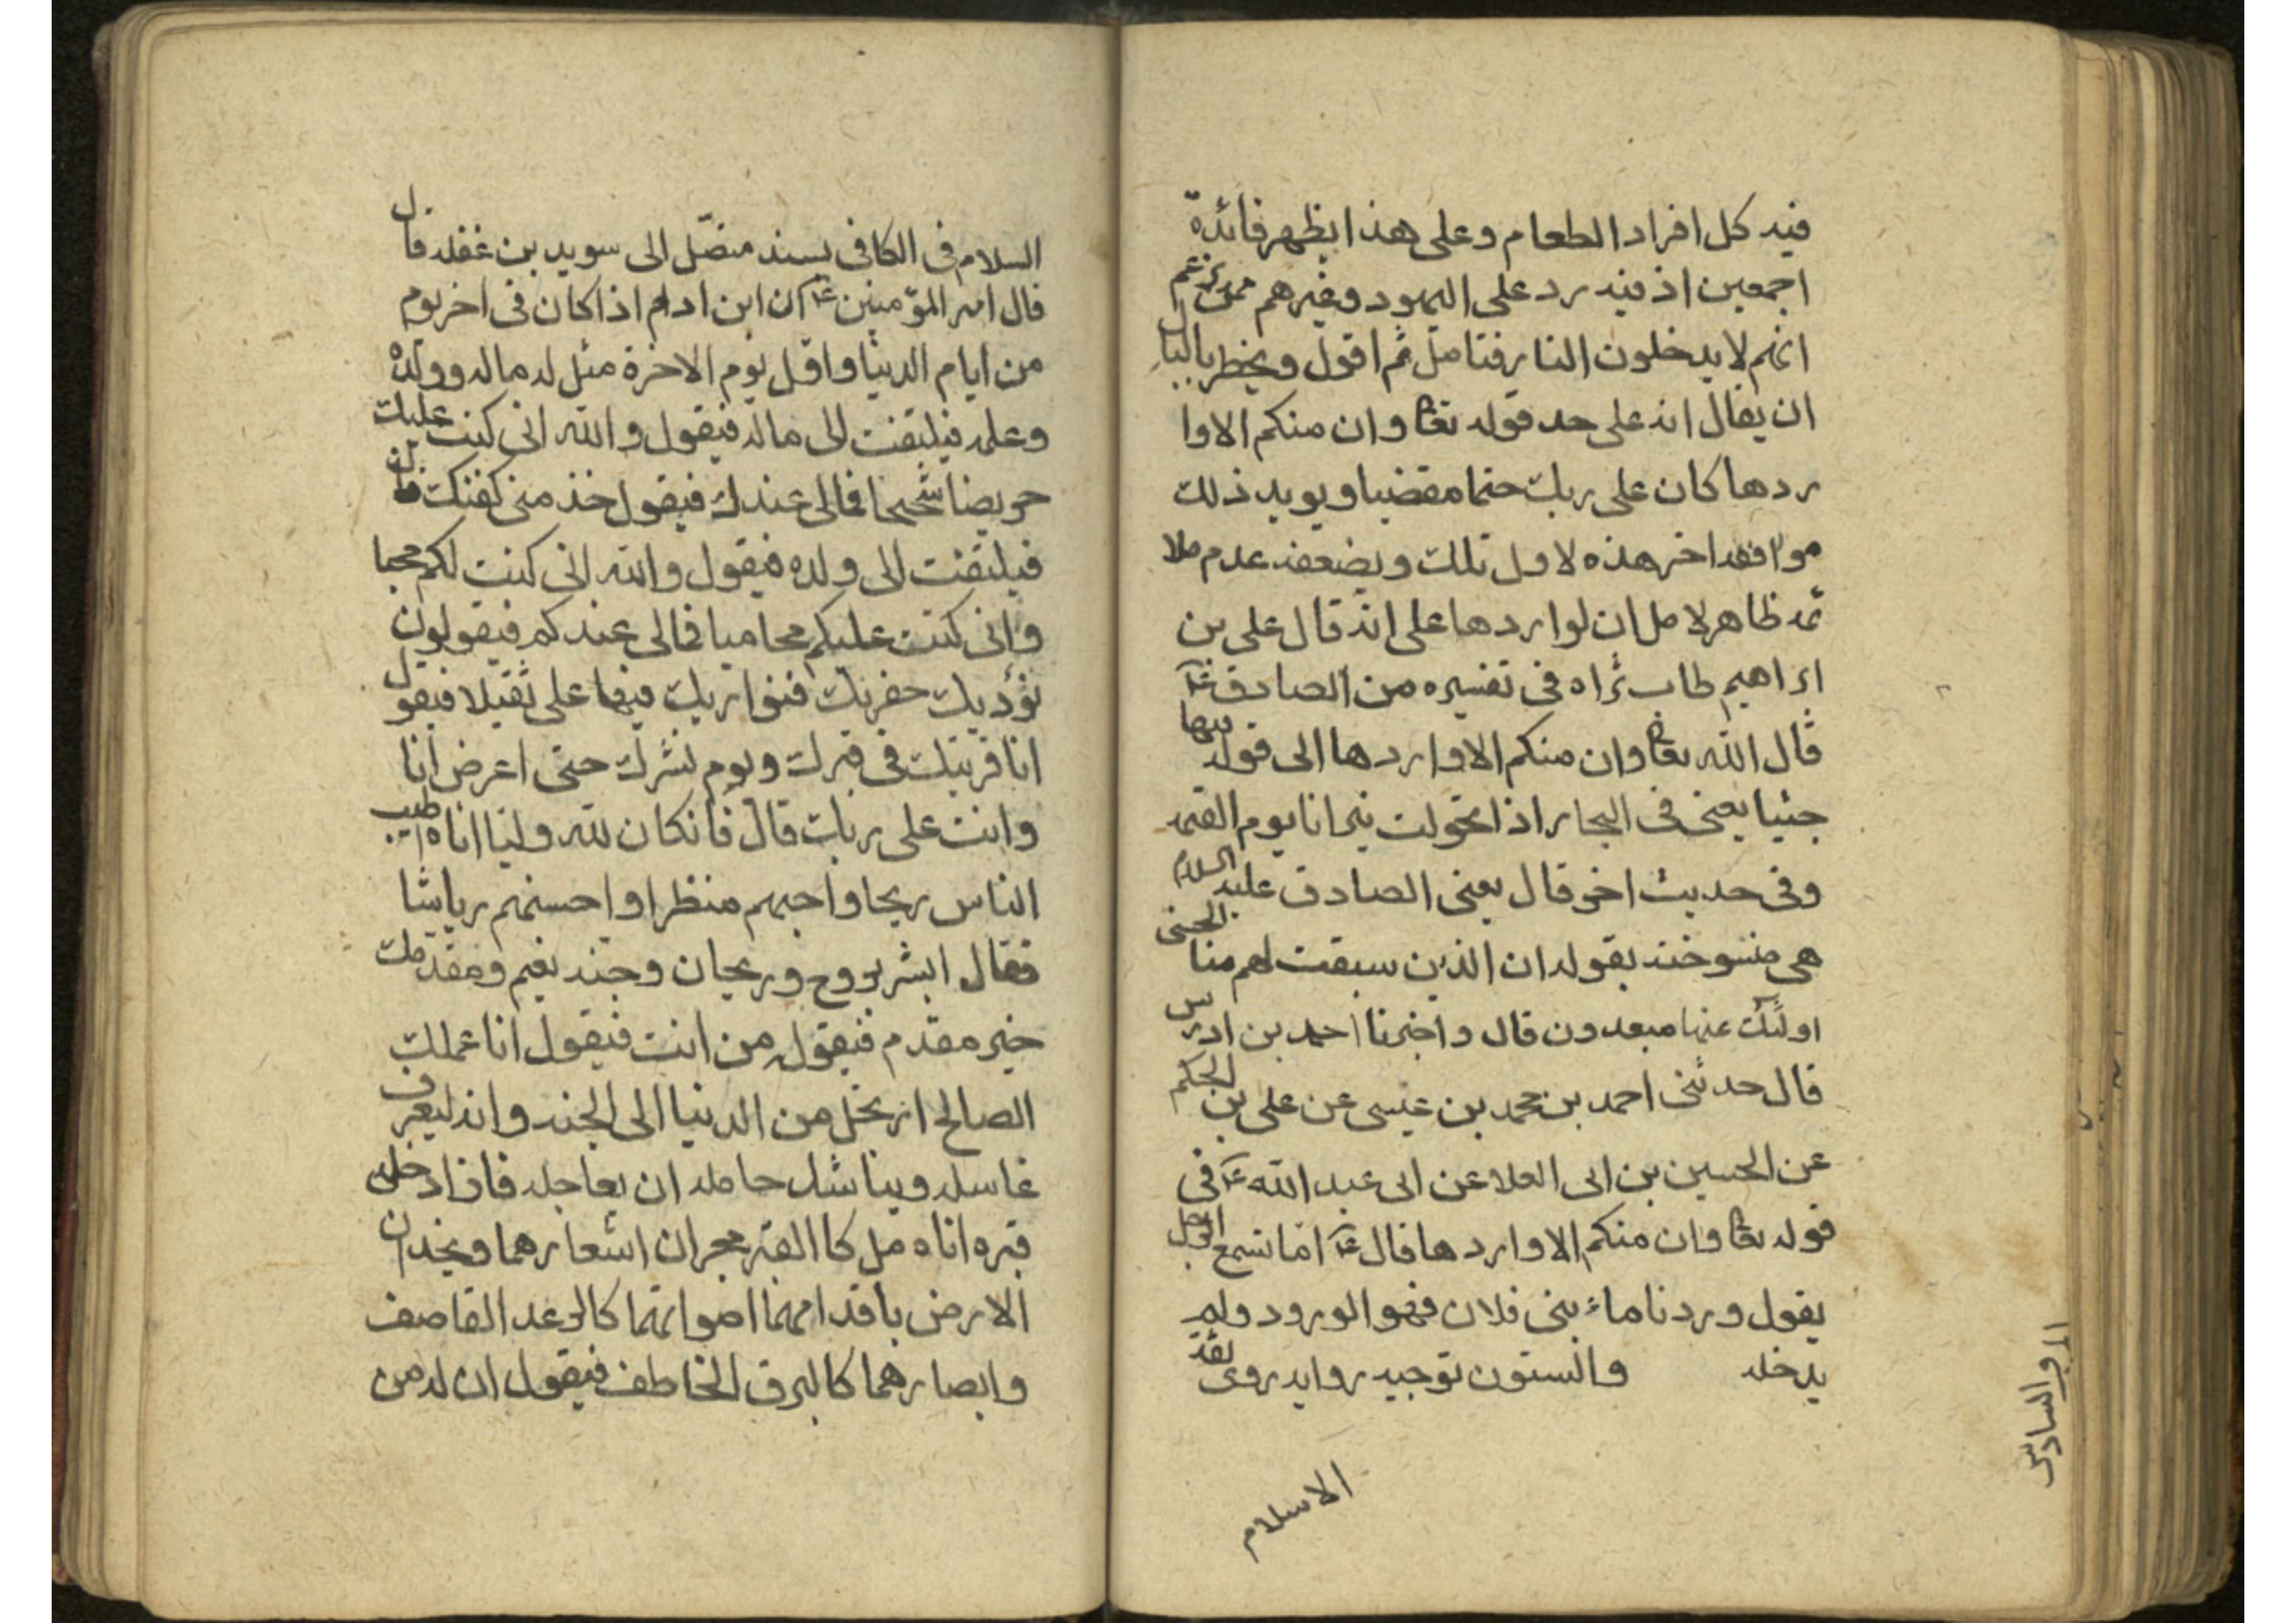 فيه كل افراد الطعام وعلى هذا يظهر فائدة
اجمعين اذ فيه رد على اليهود وغيرهم ممن زعم
انهم لا يدخلون النار فتامل ثم اقول ويخطر بالبال
ان يقال انه على حد قوله تعا وان منكم الا وا
ردها كان على ربك حتما مقضيا ويويد ذلك
موافقه اخر هذه لاول تلك ويضعفه عدم ملا
ئمه ظاهر لاملان لواردها على انه قال على بن
ابراهيم طاب ثراه فى تفسيره من الصادق ع
قال الله تعا وان منكم الا واردها الى قوله فيها
جثيا يعنى فى البحار اذا تحولت نيرانا يوم القيمه
وفى حديث اخر قال يعنى الصادق عليه السلام
هى منسوخه بقوله ان الذين سبقت لهم منا الحسنى
اولئك عنها مبعدون قال واخبرنا احمد بن ادريس
قال حدثنى احمد بن محمد بن عيسى عن على بن الحكم
عن الحسين بن ابى العلا عن ابى عبد الله ع فى
قوله تعا وان منكم الا واردها قال ع اما تسمع الرجل
يقول وردنا ماء بنى فلان فهو الورود ولم
يدخله والستون توجيه روايه روى ثقة
الاسلام
السلام فى الكافى بسند متصل الى سويد بن غفله قال
قال امير المؤمنين ع ان ابن ادم اذا كان فى اخر يوم
من ايام الدنيا واول يوم الاخرة مثل له ماله وولده
وعمله فيلتفت الى ماله فيقول والله انى كنت عليك
حريصا شحيحا فمالى عندك فيقول خذ منى كفنك قال
فيلتفت الى ولده فيقول والله انى كنت لكم محبا
وانى كنت عليكم محاميا فمالى عندكم فيقولون
نؤديك حفرتك فنواريك فيها على ثقيلا فيقول
انا قرينك فى قبرك ويوم نشرك حتى اعرض انا
وانت على ربك قال فانكان لله وليا اتاه اطيب
الناس ريحا واحبهم منظرا واحسنهم رياشا
فقال ابشر بروح وريحان وجنه نعيم ومقدمك
خير مقدم فيقول من انت فيقول انا عملك
الصالح ارتحل من الدنيا الى الجنه وانه ليعرف
غاسله ويناشد حامله ان يعاجله فاذا دخله
قبره اتاه ملكا القبر يجران اشعارهما ويخدان
الارض باقدامهما اصواتهما كالرعد القاصف
وابصارهما كالبرق الخاطف فيقولان له من